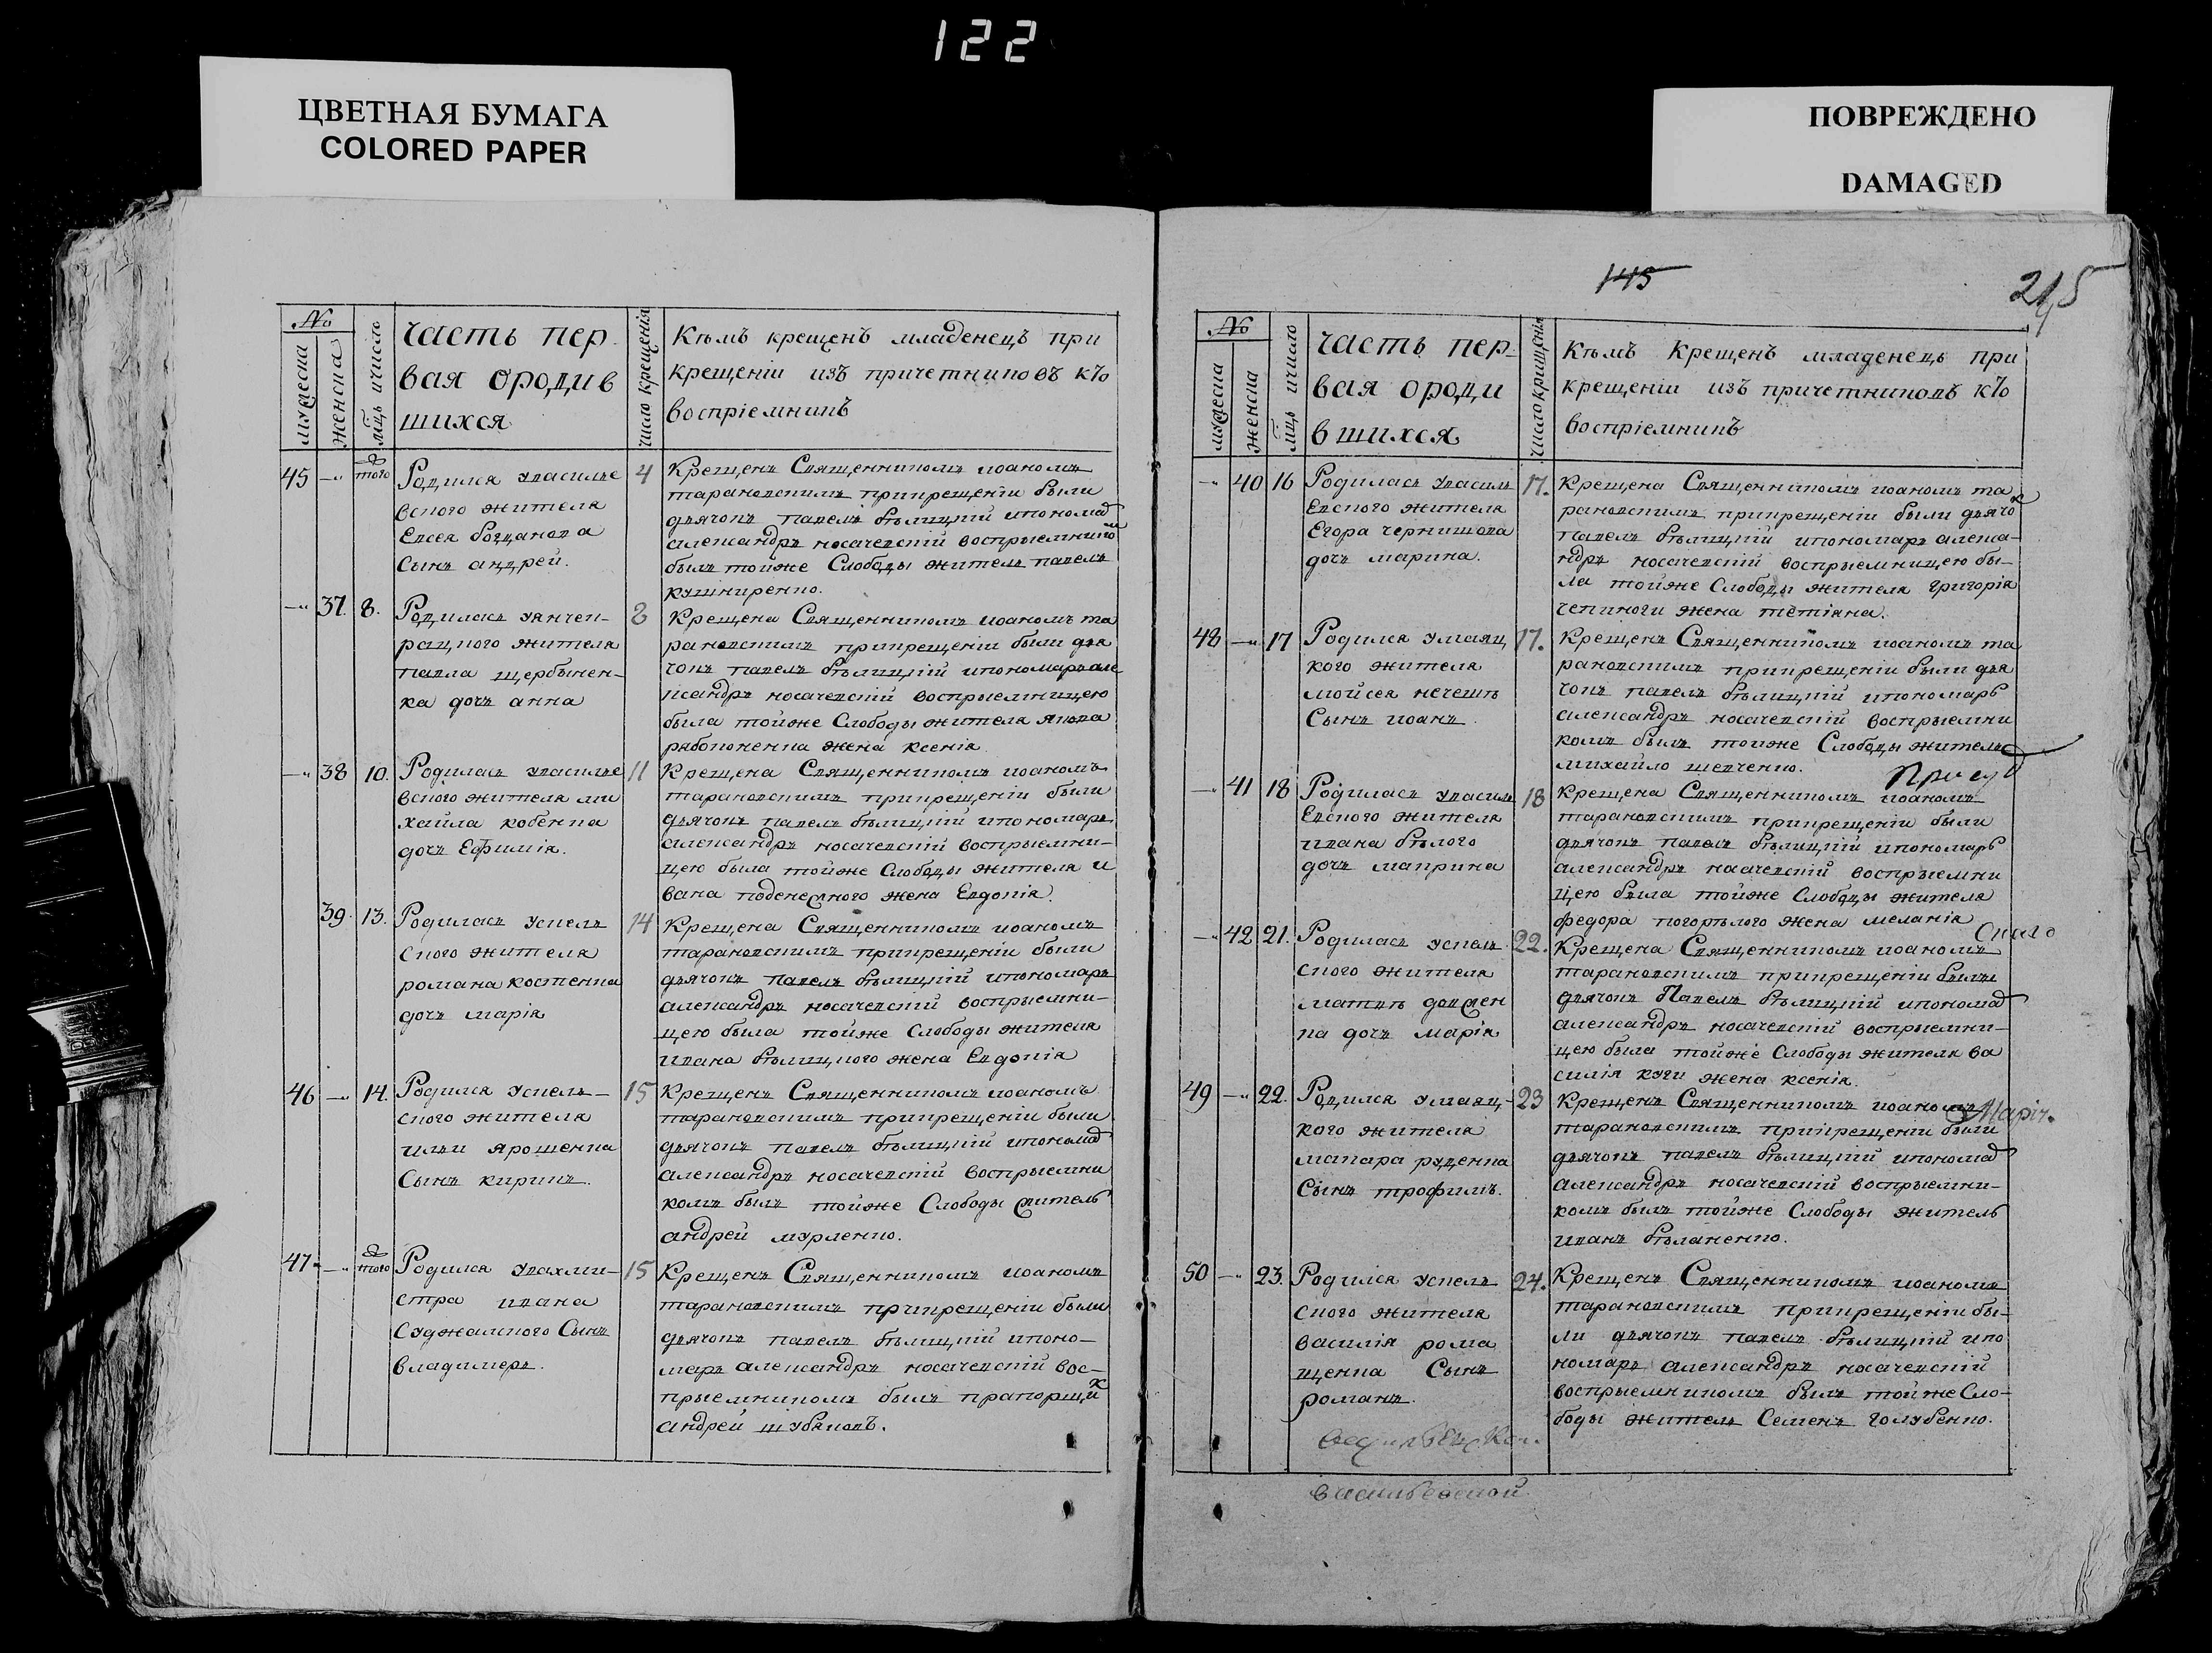 122
ЦВЕТНАЯ БУМАГА
COLORED PAPER
ПОВРЕЖДЕНО
DAMAGED
№
мужеска
женска
мць ичисло
часть пер
вая ородив
шихся
число крещенія
Кѣмъ крещенъ младенецъ при
крещеніи изъ причетниковъ кто
воспріемникъ
45 —„ того 4
Родился увасилье
вского жителя
Евсея богданова
Сынъ андрей.
Крещенъ Священникомъ иоаномъ
тарановскимъ прикрещеніи были
дьячокъ павелъ бѣлицкій ипономар
александръ носачевскій воспрыемнико
былъ тойже Слободы житель павелъ
кушниренко.
—„ 37. 8. 8
Родилась уянчек-
рацкого жителя
павла щербинен-
ка дочь анна
Крещена Священникомъ иоаномъ та
рановскимъ прикрещеніи были дья
чокъ павелъ бѣлицкій ипономаръ але
ксандръ носачевскій воспрыемницею
была тойже Слободы жителя якова
рябоконенка жена ксенія
—„ 38 10. 11
Родилась увасилье
вского жителя ми
хайла кобенка
дочь Ефимія.
Крещена Священникомъ иоаномъ
тарановскимъ прикрещеніи были
дьячокъ павелъ бѣлицкій ипономарь
александръ носачевскій воспрыемни-
цею была тойже Слободы жителя и
вана поднесного жена Евдокія.
39. 13. 14
Родилась успев
ского жителя
романа костенка
дочь марія
Крещена Священникомъ иоаномъ
тарановскимъ прикрещеніи были
дьячокъ павелъ бѣлицкій ипономарь
александръ носачевскій воспрыемни-
цею была тойже Слободы жителя
ивана бѣлицкого жена Евдокія
46 —„ 14. 15
Родился успев-
ского жителя
ильи ярошенка
Сынъ кирикъ.
Крещенъ Священникомъ иоаномъ
тарановскимъ прикрещеніи были
дьячокъ павелъ бѣлицкій ипономар
александръ носачевскій воспрыемни
комъ былъ тойже Слободы житель
андрей мурленко.
47. —„ того 15
Родился увахми-
стра ивана
Суджанского Сынъ
владимеръ.
Крещенъ Священникомъ иоаномъ
тарановскимъ прикрещеніи были
дьячокъ павелъ бѣлицкій ипоно-
марь александръ носачевскій вос-
прыемникомъ былъ прапорщик
андрей шубаковъ.
145
215
№
мужеска
женска
мць ичисло
часть пер-
вая ороди
вшихся
число крищенія
Кѣмъ Крещенъ младенець при
крещеніи изъ причетниковъ кто
воспріемникъ
—„ 40 16 17.
Родилась увасиль
Евского жителя
Егора чернишова
дочь марина.
Крещена Священникомъ иоаномъ та
рановскимъ прикрещеніи были дьячо
павелъ бѣлицкій ипономарь алекса-
ндръ носачевскій воспрыемницею бы-
ла тойже Слободы жителя григорія
чепиноги жена тѣтіяна.
48 —„ 17 17.
Родился умаяц
кого жителя
мойсея нечешь
Сынъ иоанъ.
Крещенъ Священникомъ иоаномъ та
рановскимъ прикрещеніи были дья
чокъ павелъ бѣлицкій ипономарь
александръ носачевскій воспрыемни
комъ былъ тойже Слободы житель
михайло шевченко.
—„ 41 18 18
Родилась увасиль
Евского жителя
ивана бѣлого
дочь маврина
Крещена Священникомъ иоаномъ
тарановскимъ прикрещеніи были
дьячокъ павелъ бѣлицкій ипономарь
александръ носачевскій воспрыемни
цею была тойже Слободы жителя
федора погорѣлого жена меланія
—„ 42 21. 22.
Родилась успев
ского жителя
матвѣ довжен
ка дочь марія
Крещена Священникомъ иоаномъ
тарановскимъ прикрещеніи были
дьячокъ Павелъ бѣлицкій ипономар
александръ носачевскій воспрыемни-
цею была тойже Слободы жителя ва
силія куги жена ксенія.
49 —„ 22. 23
Родился умаяц-
кого жителя
макара руденка
Сынъ трофимъ.
Крещенъ Священникомъ иоаномъ
тарановскимъ прикрещеніи были
дьячокъ павелъ бѣлицкій ипономар
александръ носачевскій воспрыемни-
комъ былъ тойже Слободы житель
иванъ бѣланенко.
50 —„ 23. 24.
Родился успев
ского жителя
василія рома
щенка Сынъ
романъ.
Крещенъ Священникомъ иоаномъ
тарановскимъ прикрещеніи бы-
ли дьячокъ павелъ бѣлицкій ипо
номарь александръ носачевскій
воспрыемникомъ былъ тойже Сло-
боды житель Семенъ голубенко.